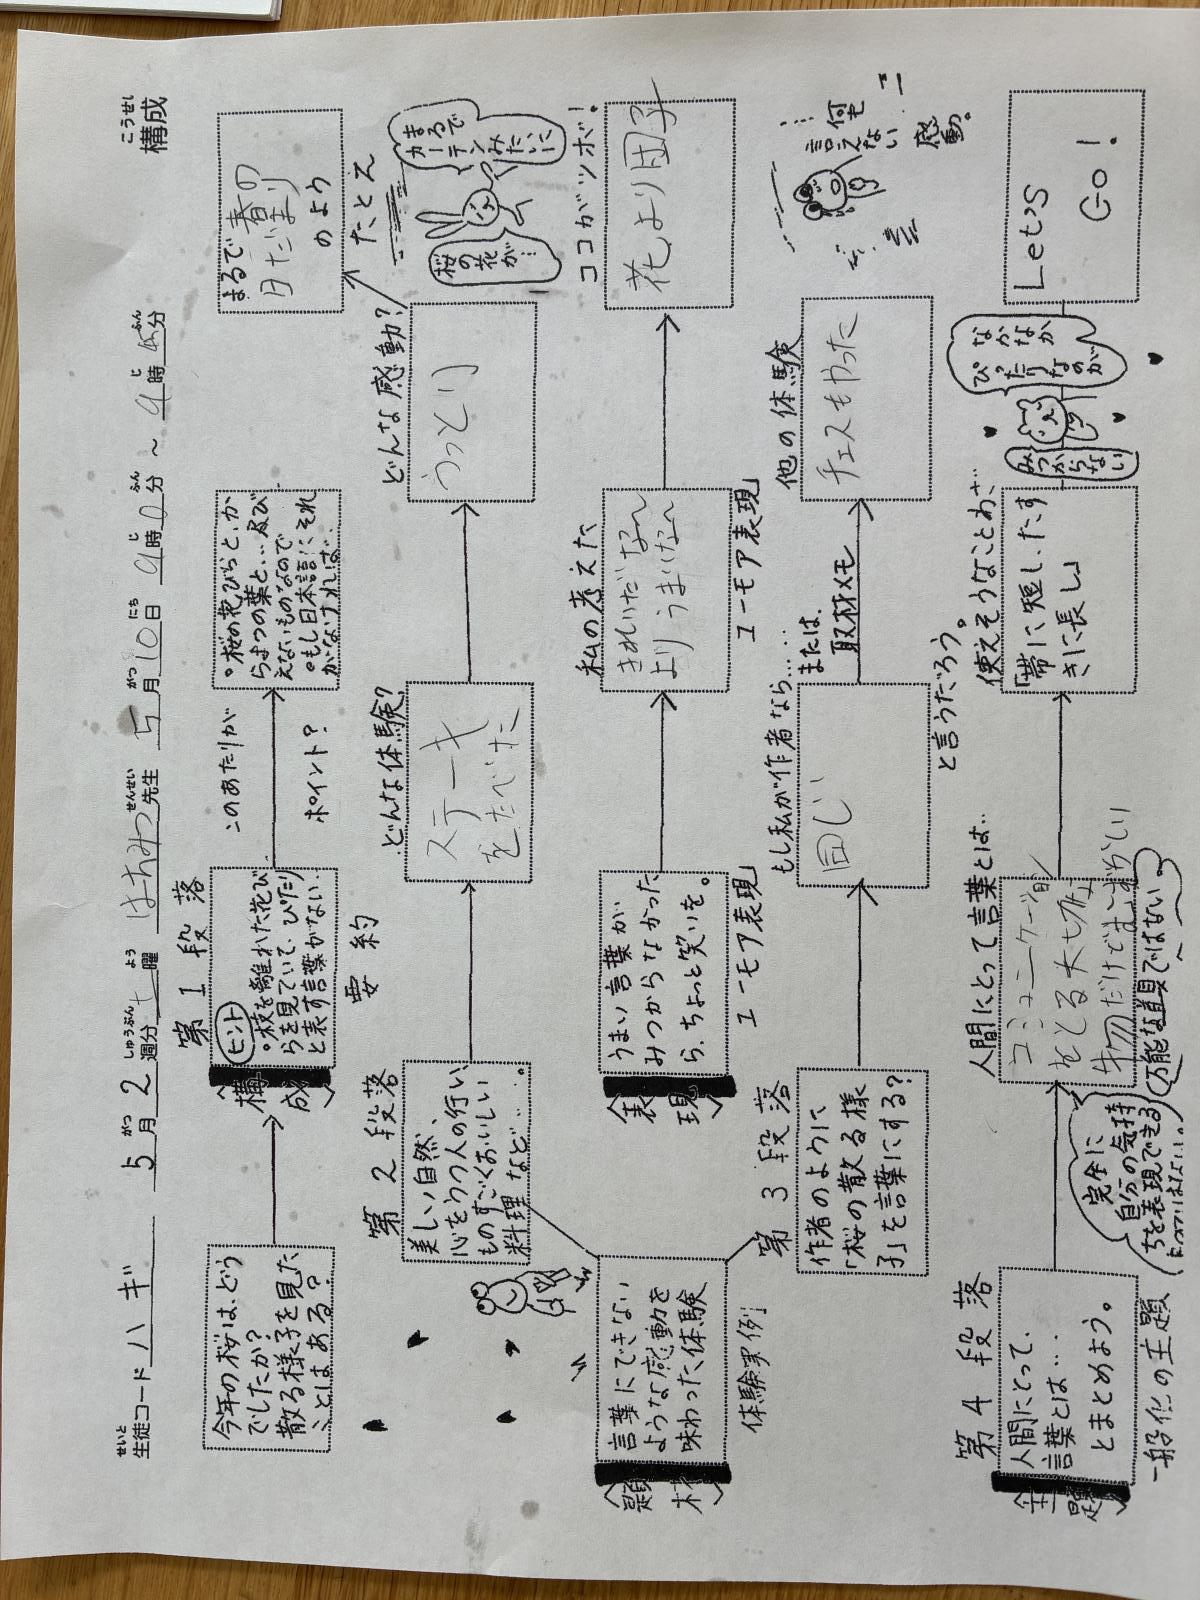 構成
こうせい
生徒コード ハギ 5月2週分 土曜 はちみつ先生 5月10日 9時0分 ～ 9時45分
せいと
がつ しゅうぶん よう せんせい がつ にち じ ふん じ ふん
第1段落
今年の桜は、どう
でしたか？
散る様子を見た
ことはある？
〈構成〉
ヒント
・枝を離れた花び
らを見ていて、ぴたり
と表す言葉がない…
要約
このあたりが
ポイント？
・桜の花びらと、か
らまつの葉と…及び
えないものなので
・もし日本語にそれ
がなければ…
まるで春の
日だまり
のよう
たとえ
第2段落
美しい自然、
心をうつ人の行い
ものすごくおいしい
料理など…。
どんな体験？
ステーキ
をたべた
どんな感動？
うっとり
桜の
花が…
まるで
カーテン
みたいに
〈題材〉
言葉にできない
ような感動を
味わった体験
体験実例
〈表現〉
うまい言葉が
みつからなかった
ら、ちょっと笑いを。
ユーモア表現
私の考えた
きれいだなー
よりうまいなー
ユーモア表現
ココがツボ！
花より団子
第3段落
作者のように
「桜の散る様
子」を言葉にする？
もし私が作者なら……
同じ
と言うだろう。
または
取材メモ
他の体験
チェスもやった
……何も
言えない
感動。
第4段落
〈主題〉
人間にとって
言葉とは…
とまとめよう。
一般化の主題
人間にとって言葉とは…
コミュニケーション
をとる大切な
物だけどまこ難しい
完全に
自分の気持
ちを表現できる
万能な道具ではない
使えそうなことわざ
「帯に短したす
きに長し」
なかなか
ぴったりなのが
みつからない
Let's
Go!